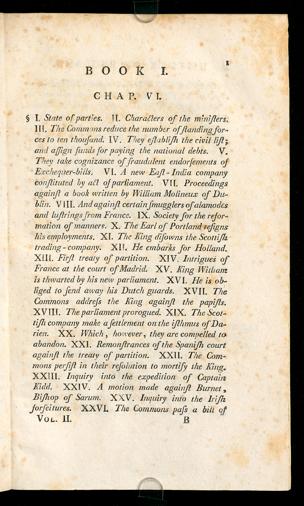 1
BOOK I.
CHAP. VI.
§ I. State of parties. II. Characters of the ministers.
III. The Commons reduce the number of standing for-
ces to ten thousand. IV. They establish the civil list;
and assign funds for paying the national debts. V.
They take cognizance of fraudulent endorsements of
Exchequer-bills. VI. A new East-India company
constituted by act of parliament. VII. Proceedings
against a book written by William Molineux of Du-
blin. VIII. And against certain smugglers of alamodes
and lustrings from France. IX. Society for the refor-
mation of manners. X. The Earl of Portland resigns
his employments. XI. The King disowns the Scottish
trading-company. XII. He embarks for Holland.
XIII. First treaty of partition. XIV. Intrigues of
France at the court of Madrid. XV. King William
is thwarted by his new parliament. XVI. He is ob-
liged to send away his Dutch guards. XVII. The
Commons address the King against the papists.
XVIII. The parliament prorogued. XIX. The Scot-
tish company make a settlement on the isthmus of Da-
rien. XX. Which, however, they are compelled to
abandon. XXI. Remonstrances of the Spanish court
against the treaty of partition. XXII. The Com-
mons persist in their resolution to mortify the King.
XXIII. Inquiry into the expedition of Captain
Kidd. XXIV. A motion made against Burnet,
Bishop of Sarum. XXV. Inquiry into the Irish
forfeitures. XXVI. The Commons pass a bill of
VOL. II. B